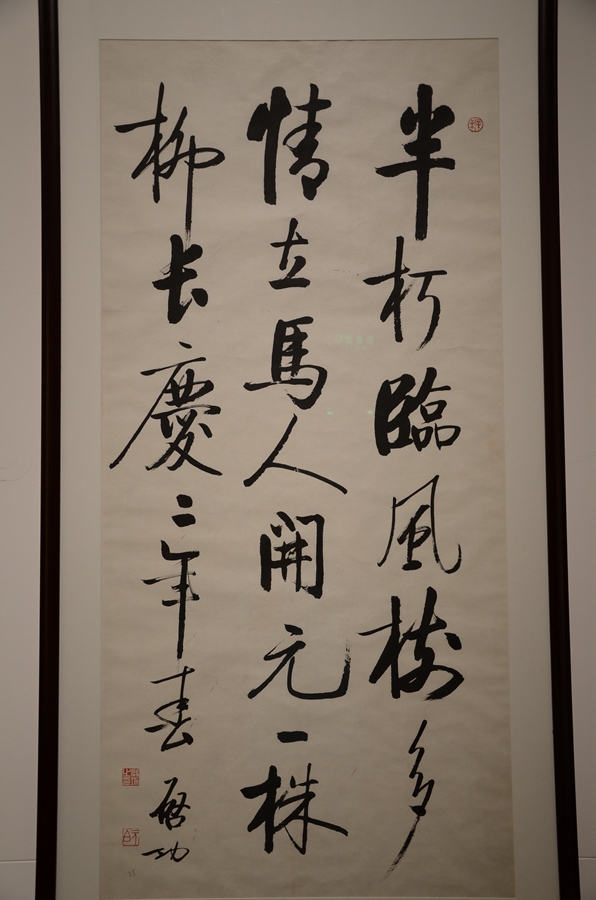 半朽臨風樹多
情立馬人開元一株
柳長慶二年春
啟功